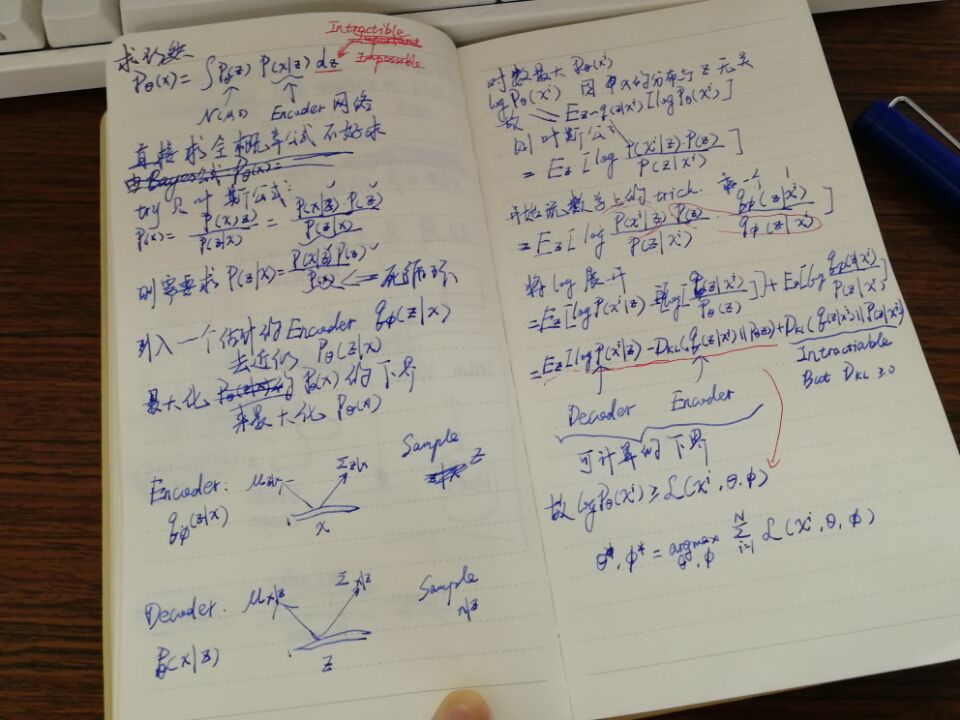 求
Pθ(x) = ∫ Pθ(z) P(x|z) dz
Intractible
Important
Impossible
N(μ,σ) Encoder 网络
直接求全概率公式不好求
由Bayes公式 Pθ(x)=
try 贝叶斯公式:
P(x) = P(x,z) / P(z|x) = P(x|z)·P(z) / P(z|x)
则需要求 P(z|x) = P(x|z)P(z) / P(x) <= 死循环
引入一个估计的 Encoder qφ(z|x)
去近似 Pθ(z|x)
最大化 Pθ(x) 的下界
来最大化 Pθ(x)
Encoder: μz|x Σz|x Sample z
qφ(z|x) x
Decoder: μx|z Σx|z Sample
x|z
Pθ(x|z) z
对数最大 Pθ(xⁱ)
log Pθ(xⁱ) 因 x的分布与 z 无关
故 = Ez~q(z|xⁱ)[log Pθ(xⁱ)]
贝叶斯公式
= Ez[log P(xⁱ|z)·P(z) / P(z|xⁱ)]
开始玩数学上的trick.
= Ez[log P(xⁱ|z)·P(z) / P(z|xⁱ) · qφ(z|xⁱ) / qφ(z|xⁱ)]
将 log 展开
= Ez[log P(xⁱ|z) - Ez[log qφ(z|xⁱ) / Pθ(z)] + Ez[log qφ(z|xⁱ) / P(z|xⁱ)]
= Ez[log P(xⁱ|z) - DKL(qφ(z|xⁱ)||Pθ(z)) + DKL(q(z|xⁱ)||P(z|xⁱ)
Intractiable
But DKL ≥ 0
Decoder Encoder
可计算的下界
故 log Pθ(xⁱ) ≥ L(xⁱ, θ, φ)
θ*, φ* = argmax θ, φ Σ i=1 N L(xⁱ, θ, φ)